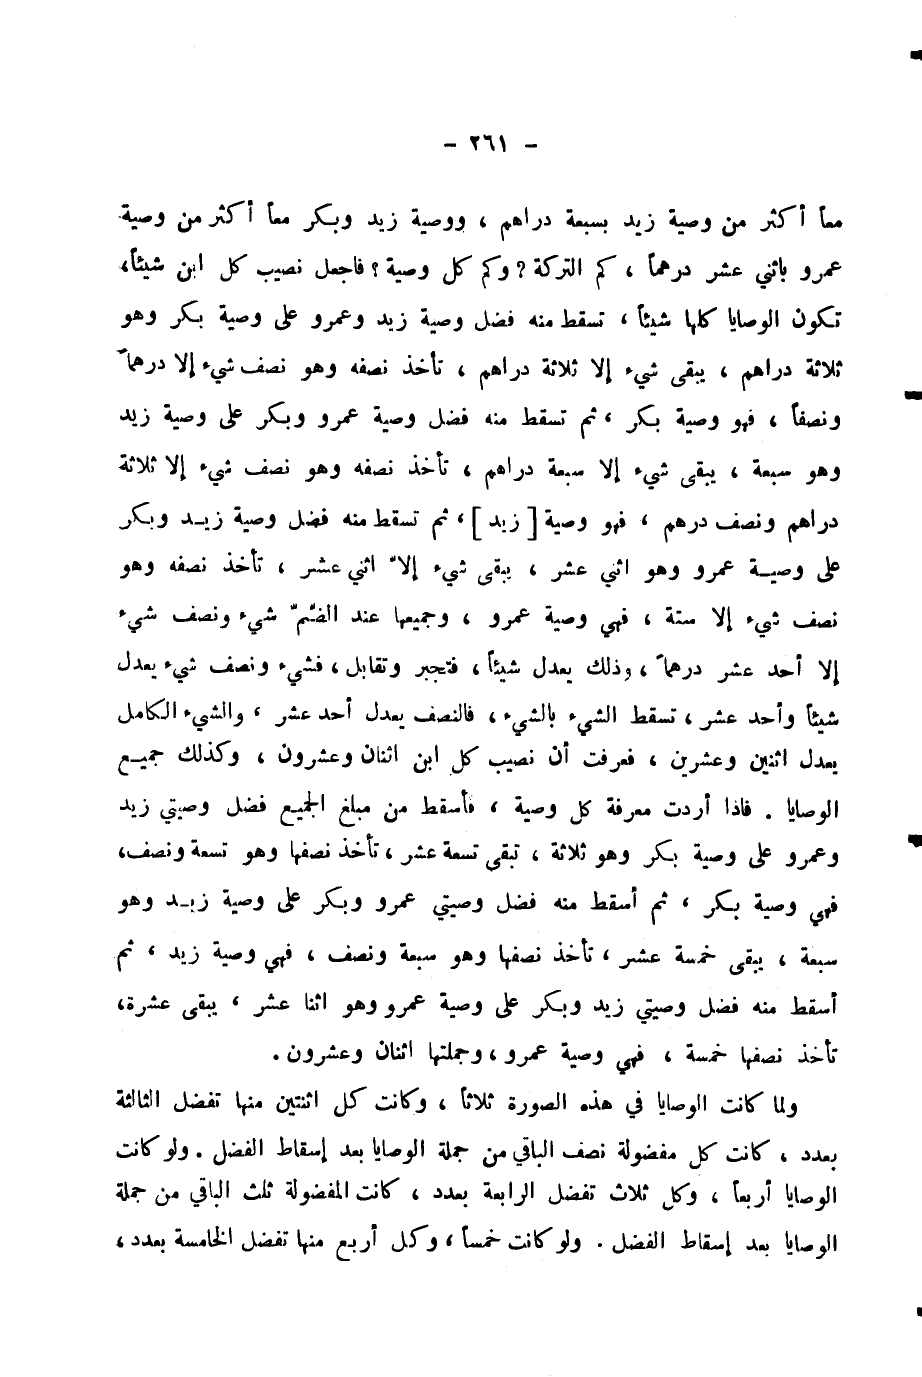 - ٢٦١ -
معاً أكثر من وصية زيد بسبعة دراهم ، ووصية زيد وبكر معاً أكثر من وصية
عمرو باثني عشر درهماً ، كم التركة ؟ وكم كل وصية ؟ فاجعل نصيب كل ابن شيئاً،
تكون الوصايا كلها شيئاً ، تسقط منه فضل وصية زيد وعمرو على وصية بكر وهو
ثلاثة دراهم ، يبقى شيء إلا ثلاثة دراهم ، تأخذ نصفه وهو نصف شيء إلا درهماً
ونصفاً ، فهو وصية بكر ، ثم تسقط منه فضل وصية عمرو وبكر على وصية زيد
وهو سبعة ، يبقى شيء إلا سبعة دراهم ، تأخذ نصفه وهو نصف شيء إلا ثلاثة
دراهم ونصف درهم ، فهو وصية [ زيد ] ، ثم تسقط منه فضل وصية زيد وبكر
على وصية عمرو وهو اثني عشر ، يبقى شيء إلاّ اثني عشر ، تأخذ نصفه وهو
نصف شيء إلا ستة ، فهي وصية عمرو ، وجميعها عند الضّمّ شيء ونصف شيء
إلا أحد عشر درهماً ، وذلك يعدل شيئاً ، فتجبر وتقابل ، فشيء ونصف شيء يعدل
شيئاً وأحد عشر ، تسقط الشيء بالشيء ، فالنصف يعدل أحد عشر ، والشيء الكامل
يعدل اثنين وعشرين ، فعرفت أن نصيب كل ابن اثنان وعشرون ، وكذلك جميع
الوصايا . فاذا أردت معرفة كل وصية ، فأسقط من مبلغ الجميع فضل وصيتي زيد
وعمرو على وصية بكر وهو ثلاثة ، تبقى تسعة عشر ، تأخذ نصفها وهو تسعة ونصف،
فهي وصية بكر ، ثم أسقط منه فضل وصيتي عمرو وبكر على وصية زيد وهو
سبعة ، يبقى خمسة عشر ، تأخذ نصفها وهو سبعة ونصف ، فهي وصية زيد ، ثم
أسقط منه فضل وصيتي زيد وبكر على وصية عمرو وهو اثنا عشر ، يبقى عشرة،
تأخذ نصفها خمسة ، فهي وصية عمرو ، وجملتها اثنان وعشرون .
ولما كانت الوصايا في هذه الصورة ثلاثاً ، وكانت كل اثنتين منها تفضل الثالثة
بعدد ، كانت كل مفضولة نصف الباقي من جملة الوصايا بعد إسقاط الفضل . ولو كانت
الوصايا أربعاً ، وكل ثلاث تفضل الرابعة بعدد ، كانت المفضولة ثلث الباقي من جملة
الوصايا بعد إسقاط الفضل . ولو كانت خمساً ، وكل أربع منها تفضل الخامسة بعدد ،